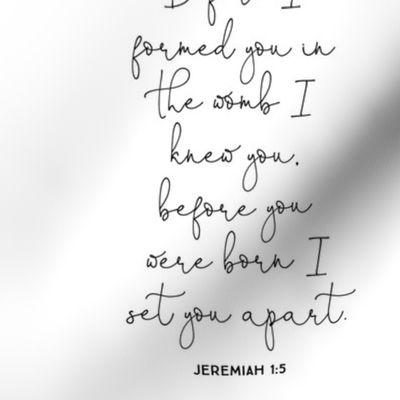 Before I
formed you in
the womb I
knew you,
before you
were born I
set you apart.
JEREMIAH 1:5